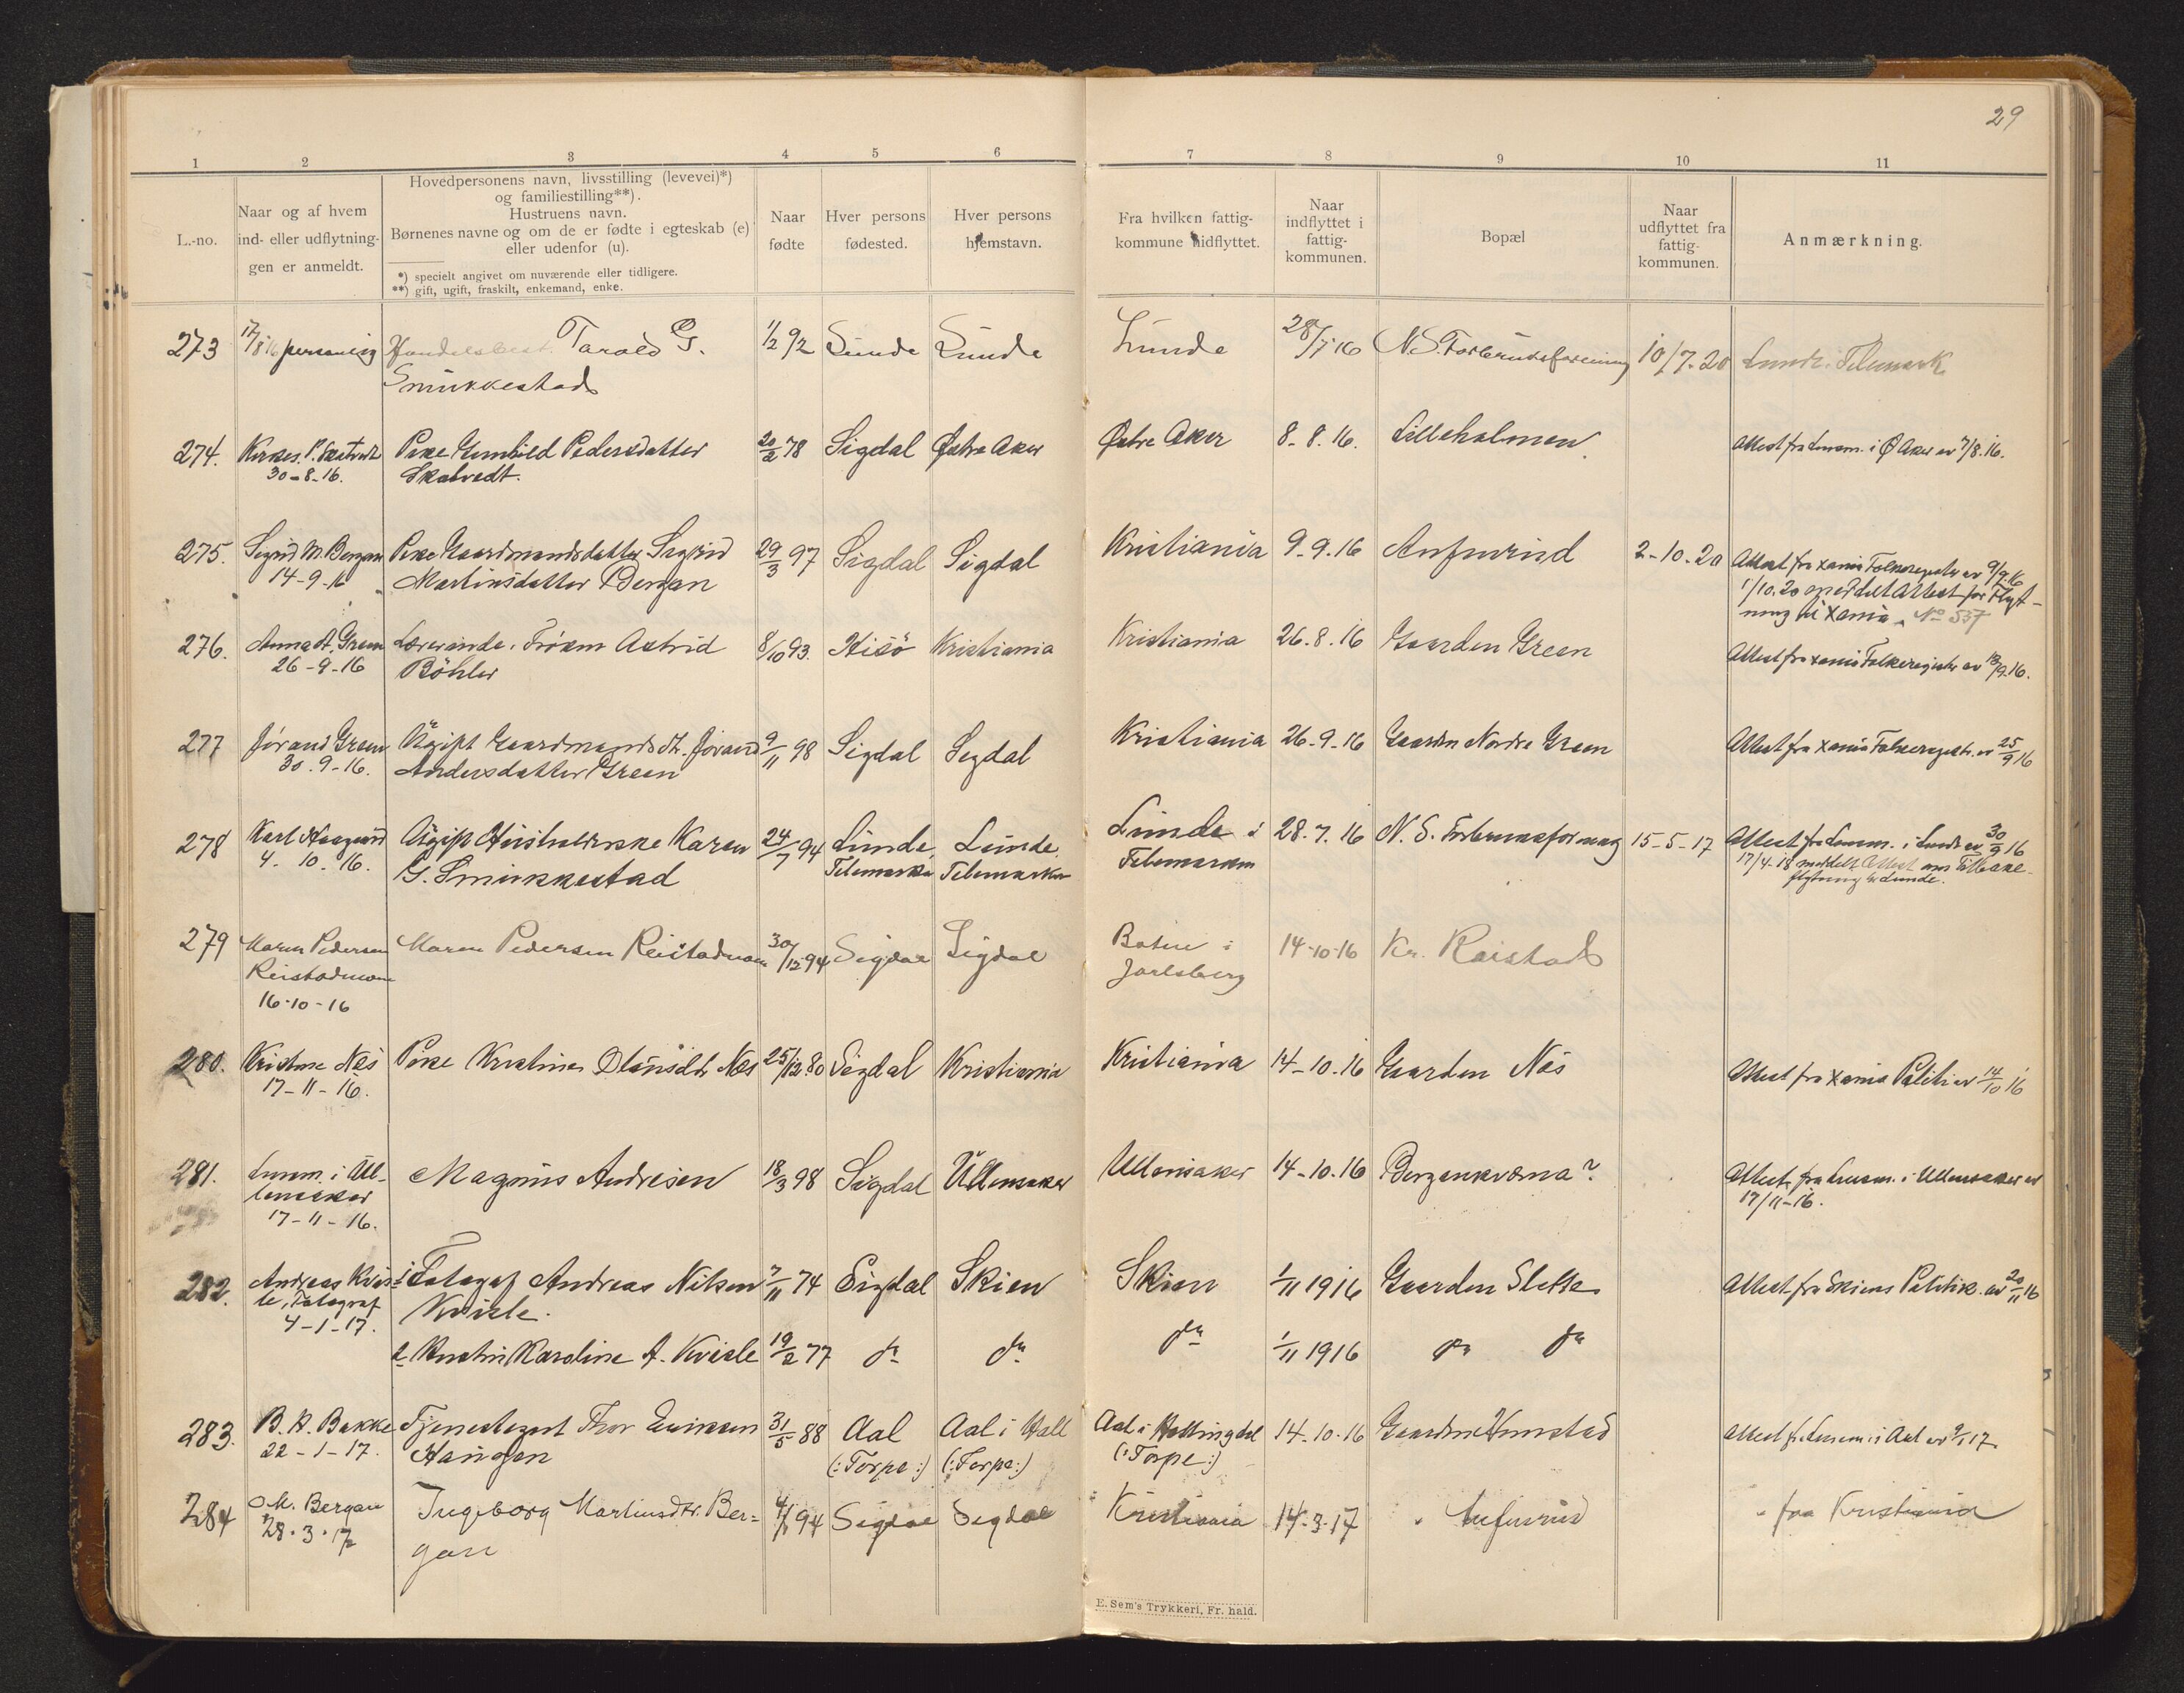 29
1 2 3 4 5 6 7 8 9 10 11
L.-no.
Naar og af hvem
ind- eller udflytnin-
gen er anmeldt.
Hovedpersonens navn, livsstilling (levevei)*)
og familiestilling**).
Hustruens navn.
Børnenes navne og om de er fødte i egteskab (e)
eller udenfor (u).
*) specielt angivet om nuværende eller tidligere.
**) gift, ugift, fraskilt, enkemand, enke.
Naar
fødte
Hver persons
fødested.
Hver persons
hjemstavn.
Fra hvilken fattig-
kommune hidflyttet.
Naar
indflyttet i
fattig-
kommunen.
Bopæl
Naar
udflyttet fra
fattig-
kommunen.
Anmærkning.
273 17/8 16 personlig Handelsbest. Tarald G. 1/2 92 Lunde Lunde Lunde 28/7 16 N.S. Forbruksforening 10/7-20 Lunde i Telemark
Smukkestad
274. Pike Gunhild Pedersdatter 20/2 78 Sigdal Østre Aker Østre Aker 8-8.16. Lilleholmen Attest fra Lensm. i Ø Aker av 7/8.16.
30-8-16. Skatvedt.
275. Sigrid M. Bergan Pike Gaardmandsdatter Sigrid 29/3 97 Sigdal Sigdal Kristiania 9-9.16 Anfinrud 2-10.20 Attest fra Xania Folkeregister av 9/9.16
14-9-16 Martinsdatter Bergan 1/10.20 attest for Flyt-
ning til Xania. No 537
276. Anna A. Green Lærerinde, Frøken Astrid 8/10 93. Hisö Kristiania Kristiania 26.8.16 Gaarden Green Attest fra Xania Folkeregister av 18/9.16.
26-9-16 Böhler
277 Jørand Green Ugift Gaardmandsdtr. Jørand 9/11 98 Sigdal Sigdal Kristiania 26-9-16 Gaarden Nordre Green Attest fra Xania Folkeregistr. av 25/9 16
30.9-16. Andersdatter Green
278 Karl Haagaas Ugift Husholderske Karen 24/7 94 Lunde, Lunde. Lunde i 28.7.16 N.S. Forbruksforening 15-5-17 Attest fra Lensm. i Lunde av 30/9 16
4-10-16. G. Smukkestad Telemarken Telemarken Telemarken 17/4-18 meddelt Attest om Tilbake-
flytning til Lunde.
279 Maren Pedersen Maren Pedersen Reistadmoen 30/12 94 Sigdal Sigdal Botne i 14-10-16 Kr. Reistad
Reistadmoen Jarlsberg
16-10-16
280. Kristine Næs Pike Kristine Olausdtr Næs 25/12 80 Sigdal Kristiania Kristiania 14-10.16 Gaarden Næs Attest fra Xania Politi av 14/10 16
17-11-16.
281. Lensm. i Ul- Magnus Andresen 18/3 98 Sigdal Ullensaker Ullensaker 14-10.16 Bergankværna? Attest fra Lensm. i Ullensaker av
lensaker 17/11-16.
17-11-16.
282. Andreas Kvis- 1 Fotograf Andreas Nilsen 7/11 74 Sigdal Skien Skien 1/11 1916 Gaarden Slette Attest fra Skiens Politik. av 20/11 16
le, Fotograf Kvisle.
4-1-17.
2 Hustru Karoline A. Kvisle 19/2 77 do do do 1/11 1916 do do
283. B. A. Bakke Tjenestegut Thor Eriksen 31/5 88 Aal Aal i Hall Aal i Hallingdal 14-10-16 Gaarden Kunstad Attest fr. Lensm. i Aal av 9/1 17.
22-1-17. Haugen (:Torpe:) (:Torpe:) (:Torpe:)
284 M. Bergan Ingeborg Martinsdtr. Ber= 94 Sigdal Sigdal Kristiania 14-3-17 Anfinrud " fra Kristiania
28.3.17 gan
E. Sem's Trykkeri, Fr. hald.